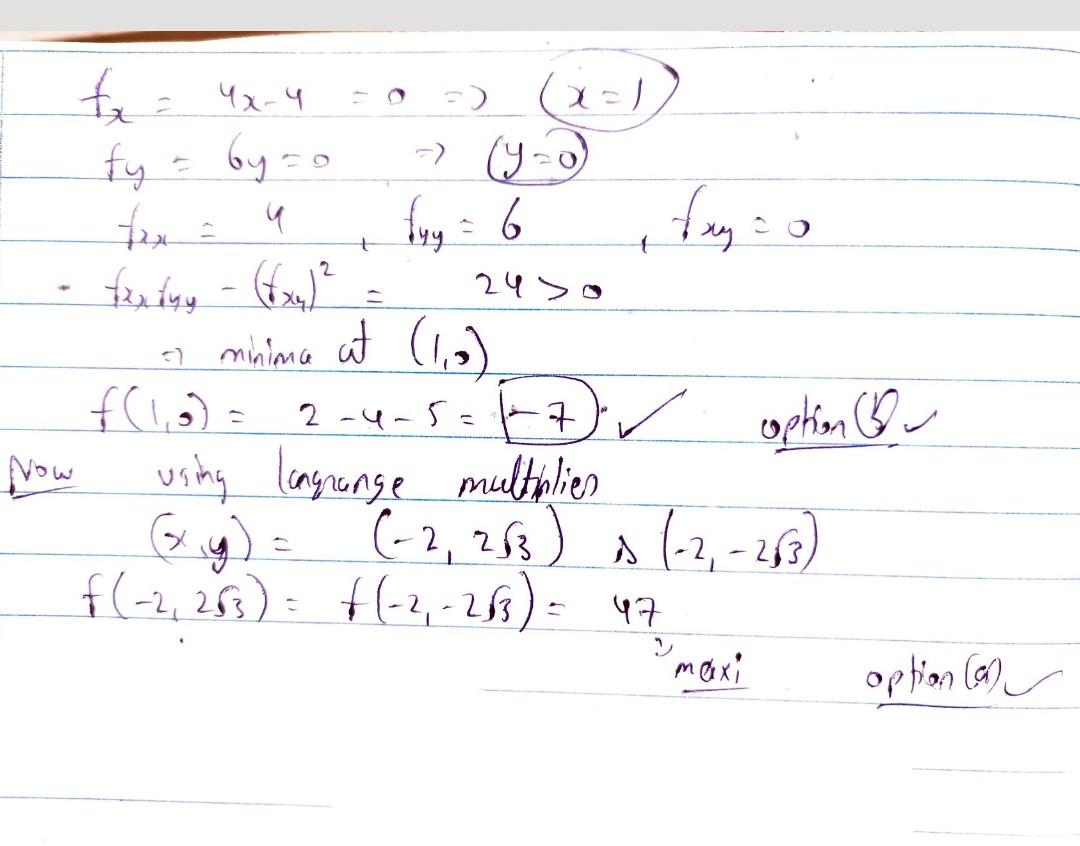 fx = 4x-4 = 0 => (x=1)
fy = 6y=0 => (y=0)
fxx = 4 , fyy = 6 , fxy = 0
- fxx fyy - (fxy)² = 24 > 0
=> minima at (1,0)
f(1,0) = 2 - 4 - 5 = -7 ✓ option (b) ✓
Now using langrange multiplier
(x,y) = (-2, 2√3) & (-2, -2√3)
f(-2, 2√3) = f(-2, -2√3) = 47
maxi option (a) ✓